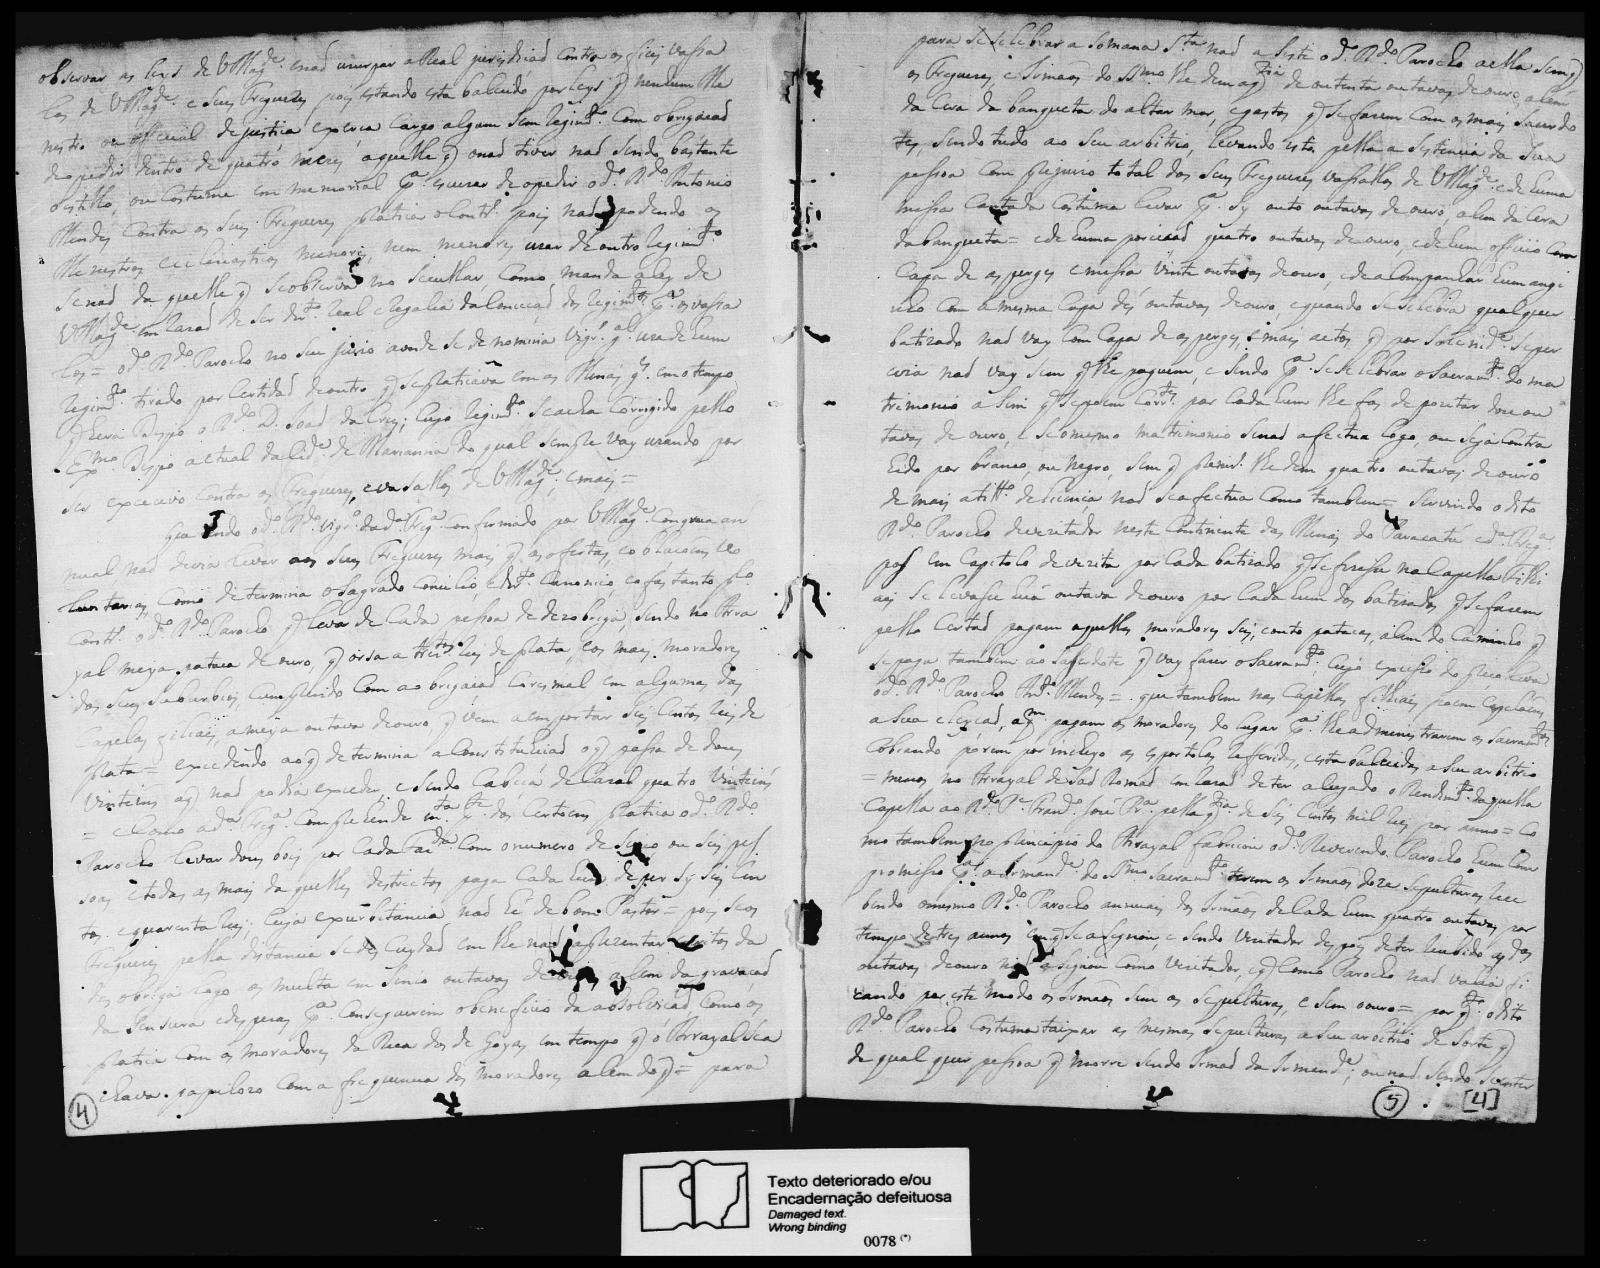 observar as leys de VMag.de enad uzurpar a Real jurisdicad contra os fieis vassa
los de VMag.de e seus Freguezes pois estando esta baleudo por leys q nenhum Me
nistro ou official de justiça exerça cargo algum sem regim.to com obrigacad
de o pedir dentro de quatro mezes aquelle q onad tiver nad sendo bastante
o estillo, ou costume em memorial p.a escuzar de o pedir o d.o R.do Antonio
Mendes contra os seus Freguezes platica o contr.o pois nad podendo os
Menistros eccleziasticos menores, nem menores uzar de outro regim.to
senad da quelle q se observa no secullar, como manda a ley de
VMag.de em razad de ser dir.to real e regalia da concecad dos regim.tos p.a os vassa
los = o d.o R.do Parocho no seu juizo aonde se denomina vigr.o g.al uza de hum
regim.to tirado por certidad de outro q se platicava em as Minas g.es em o tempo
q hera Bispo o R.do D. Joad da Cruz; cujo regim.to se acha corrigido pello
Ex.mo Bispo actual da Cid.e de Marianna do qual sempre vay uzando por
ser excecivo contra os Freguezes, e vasallos de VMag.de, e mais =
q sendo o d.o R.do vigr.o da d.a Freg.a confirmado por VMag.de congrua an
nual nad devia levar aos seus Freguezes mais q as ofertas, e oblacoens vo
luntarias, como determina o Sagrado concilio, e dir.to canonico, e o fas tanto p.lo
contr.o o d.o R.do Parocho q leva de cada pessoa de dezobriga, sendo no Arra
yal meya pataca de ouro, q orsa a trez.tos reis de prata, e os mais moradores
dos seus suburbios, cumprindo com a obrigacad coresmal em algumas das
Capelas filiais, a meya outava de ouro, q vem a emportar seis centos reis de
prata = excedendo ao q determina a Constituicad o q passa de dous
vinteins o q nad podia exceder, e sendo cabeca de cazal quatro vinteins
= e como a d.a Freg.a comprehende m.ta p.te dos certoens platica o d.o R.do
Parocho levar dous bois por cada Faz.da com o numero de sinco ou seis pes
soas e todas as mais da quelles destrictos paga cada hum de per sy seis cen
tos e quarenta reis; cuja exurbitancia nad hé de bom Pastor = pois se os
Freguezes pella distancia se des cuydad em lhe nad aprezentar escritos da
des obriga logo os multa em sinco outavas de ouro alem da gravacad
da sensura e despezas p.a conseguirem o beneficio da absolvicad como os
platica com os moradores da Rica des de Goyas em tempo q o Arrayal se a
chava papiloso com a frequencia dos Moradores alem do q = para
4
para se selebrar a Somana S.ta nad a siste o d.o R.do Parocho a ella sem q
os Freguezes, e Irmaos do SS.mo lhe dem a q.tia de outenta outavas de ouro, alem
da cera da banqueta do altar mor, e gastos q se fazem com os mais sacerdo
tes, sendo tudo ao seu arbitrio, levando esta pella a sistencia da sua
pessoa com prejuizo total dos seus Freguezes vassallos de VMag.de e de huma
missa cantada costuma levar p.a sy outo outavas de ouro, alem da cera
da banqueta = e de huma porcicad quatro outavas de ouro, e de hum officio com
capa de asperges e missa vinte outavas de ouro, e de acompanhar hum angi
nho com a mesma capa des outavas de ouro, e quando se selebra qualquer
batizado nad vay com capa de asperges, e mais actos q por solenid.e se per
ciza nad vay sem q lhe paguem, e sendo p.a se selebrar o sacram.to do ma
trimonio a sim q se poem corr.tes por cada hum lhe fas depozitar doze ou
tavas de ouro, e se o mesmo matrimonio senad afectua logo, ou seja contra
hido por branco, ou negro, sem q prim.o lhe dem quatro outavas de ouro
de mais a tit.o de licença, nad se afectua como tambem = servindo o dito
R.do Parocho de vezitador neste continente das Minas do Paracatú e d.a Freg.a
pos em capitolo de vezita por cada batizado q se fizesse na Capella Fili
ais se levasse huã outava de ouro por cada hum dos batizados q se fazem
pello certad pagam aquelles moradores seis, e outo patacas, alem do caminho q
se paga tambem ao saserdote q vay fazer o sacram.to cujo excesso do q u o leva
o d.o R.do Parocho An.to Mendes = que tambem nas Capellas filiais poem Capelaens
a sua eleycad, a q.m pagam os moradores do lugar p.a lhe admenistrarem os sacram.tos
cobrando porem por inteiro as esportolas referidas, esta baleudas a seu arbitrio
= menos no Arrayal de Sad Romad em razad de ter alugado o Rendim.to da quella
Capella ao R.do P.e Fran.co José Pr.a pella q.tia de seis centos mil reis por anno = Co
mo tambem no principio do Arrayal fabricou o d.o Reverendo Parocho hum com
promisso p.a a Irmand.e do SS.mo Sacram.to terem os Irmaos doze sepulturas rece
bendo o mesmo R.do Parocho annuais dos Irmaos de cada hum quatro outavas por
tempo de tres annos em q se a signou, e sendo vezitador despois de ter recebido as d.as
outavas de ouro nad a signou como vezitador, e q como Parocho nad valia fi
cando por este modo os Irmaos sem as sepulturas, e sem o ouro = por q.to o dito
R.do Parocho costuma taixar as mesmas sepulturas a seu arbitrio de sorte q
de qual quer pessoa q morre sendo Irmad da Irmand.e, ou nad sendo
5 [4]
Texto deteriorado e/ou
Encadernação defeituosa
Damaged text.
Wrong binding
0078 (*)